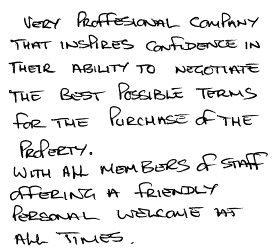 VERY PROFFESIONAL COMPANY
THAT INSPIRES CONFIDENCE IN
THEIR ABILITY TO NEGOTIATE
THE BEST POSSIBLE TERMS
FOR THE PURCHASE OF THE
PROPERTY.
WITH ALL MEMBERS OF STAFF
OFFERING A FRIENDLY
PERSONAL WELCOME AT
ALL TIMES.